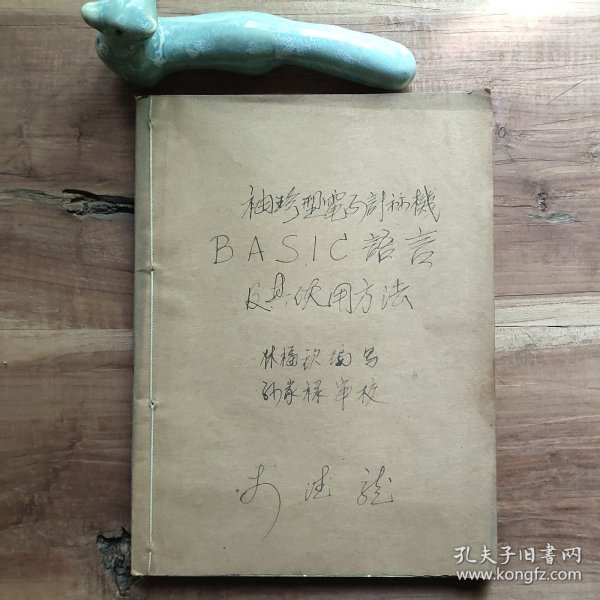 袖珍型電子計祘機
BASIC語言
及其使用方法
林福 編写
孙家禄審校
孔夫子旧书网
www.kongfz.com